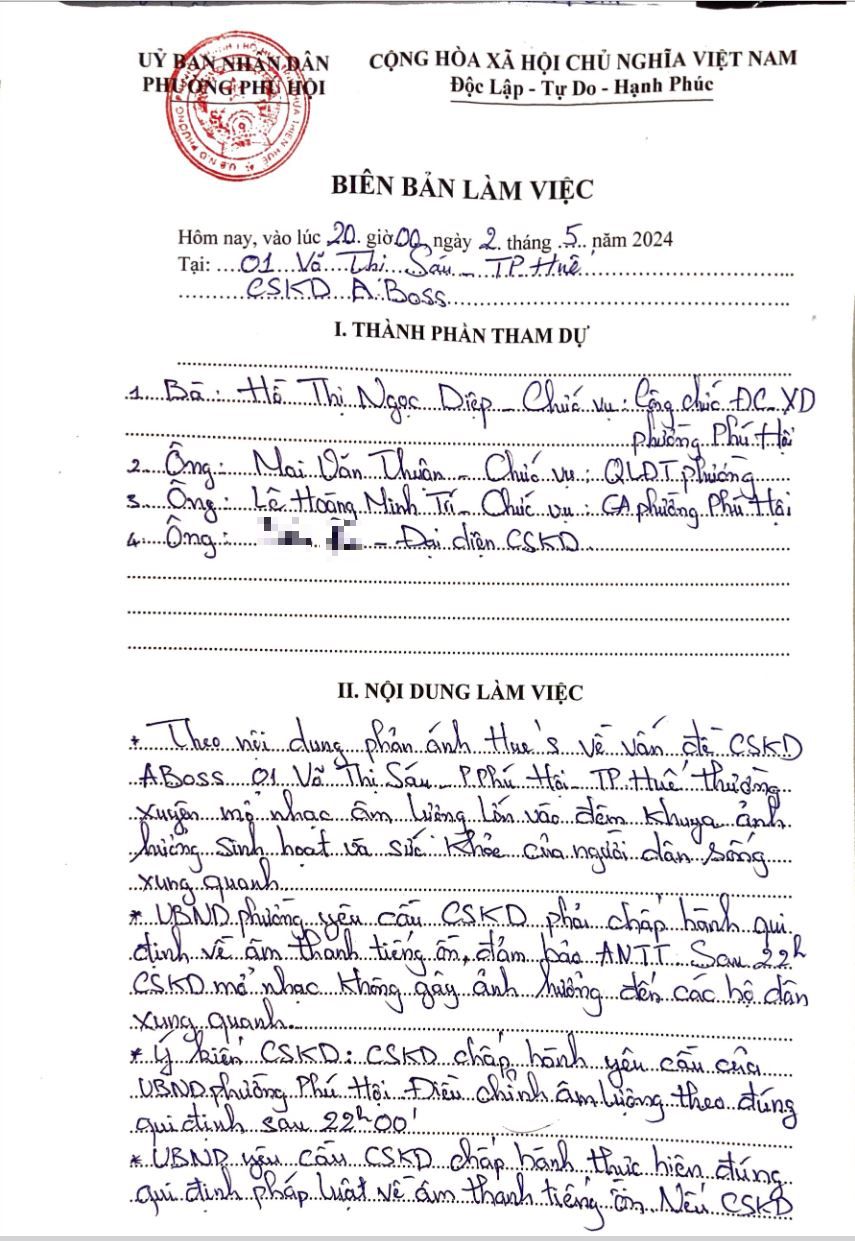 UỶ BAN NHÂN DÂN
PHƯỜNG PHÚ HỘI
CỘNG HÒA XÃ HỘI CHỦ NGHĨA VIỆT NAM
Độc Lập - Tự Do - Hạnh Phúc
BIÊN BẢN LÀM VIỆC
Hôm nay, vào lúc 20 giờ 00, ngày 2 tháng 5 năm 2024
Tại: 01 Võ Thị Sáu - TP. Huế
CSKD A'Boss
I. THÀNH PHẦN THAM DỰ
1. Bà: Hồ Thị Ngọc Diệp - Chức vụ: Công chức ĐC-XD
phường Phú Hội
2. Ông: Mai Văn Thuân - Chức vụ: QLĐT phường
3. Ông: Lê Hoàng Minh Trí - Chức vụ: CA phường Phú Hội
4. Ông: - Đại diện CSKD
II. NỘI DUNG LÀM VIỆC
* Theo nội dung phản ánh Hue's về vấn đề CSKD
ABoss 01 Võ Thị Sáu - P.Phú Hội - TP.Huế thường
xuyên mở nhạc âm lượng lớn vào đêm khuya ảnh
hưởng sinh hoạt và sức khỏe của người dân sống
xung quanh
* UBND phường yêu cầu CSKD phải chấp hành qui
định về âm thanh tiếng ồn, đảm bảo ANTT. Sau 22h
CSKD mở nhạc không gây ảnh hưởng đến các hộ dân
xung quanh.
* Ý kiến CSKD: CSKD chấp hành yêu cầu của
UBND phường Phú Hội. Điều chỉnh âm lượng theo đúng
qui định sau 22h00'
* UBND yêu cầu CSKD chấp hành thực hiện đúng
qui định pháp luật về âm thanh tiếng ồn. Nếu CSKD